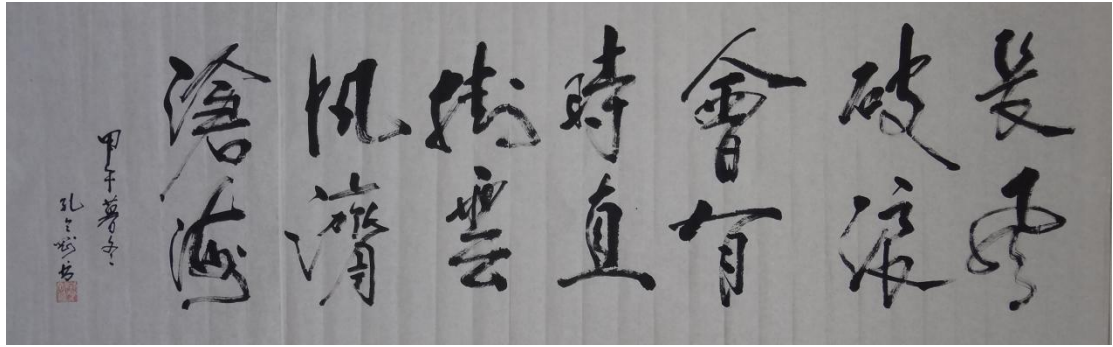 長風
破浪
會有
時直
掛雲
帆濟
滄海
甲午暮冬
孔令